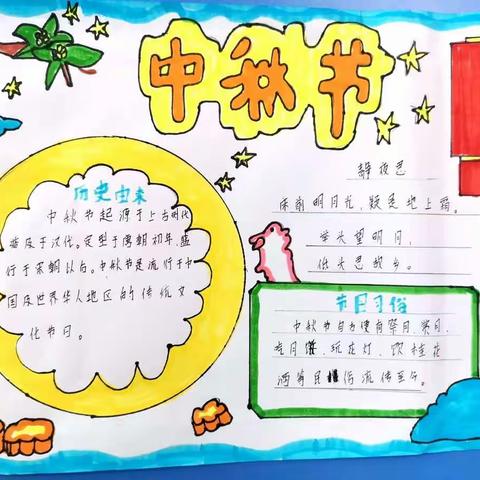 中秋节
历史由来
中秋节起源于上古时代
普及于汉代。定型于唐朝初年，盛
行于宋朝以后。中秋节是流行于中
国及世界华人地区的传统文
化节日。
静夜思
床前明月光，疑是地上霜。
举头望明月，
低头思故乡。
节日习俗
中秋节自古便有祭月、赏月、
吃月饼、玩花灯、饮桂花
酒等民俗流传至今。